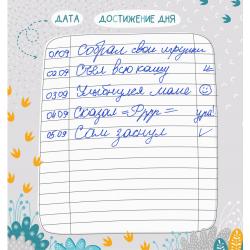 ДАТА ДОСТИЖЕНИЕ ДНЯ
01.09 Собрал свои игрушки
02.09 Съел всю кашу
03.09 Улыбнулся маме ☺
04.09 Сказал "Ррр" ура!
05.09 Сам заснул ✓